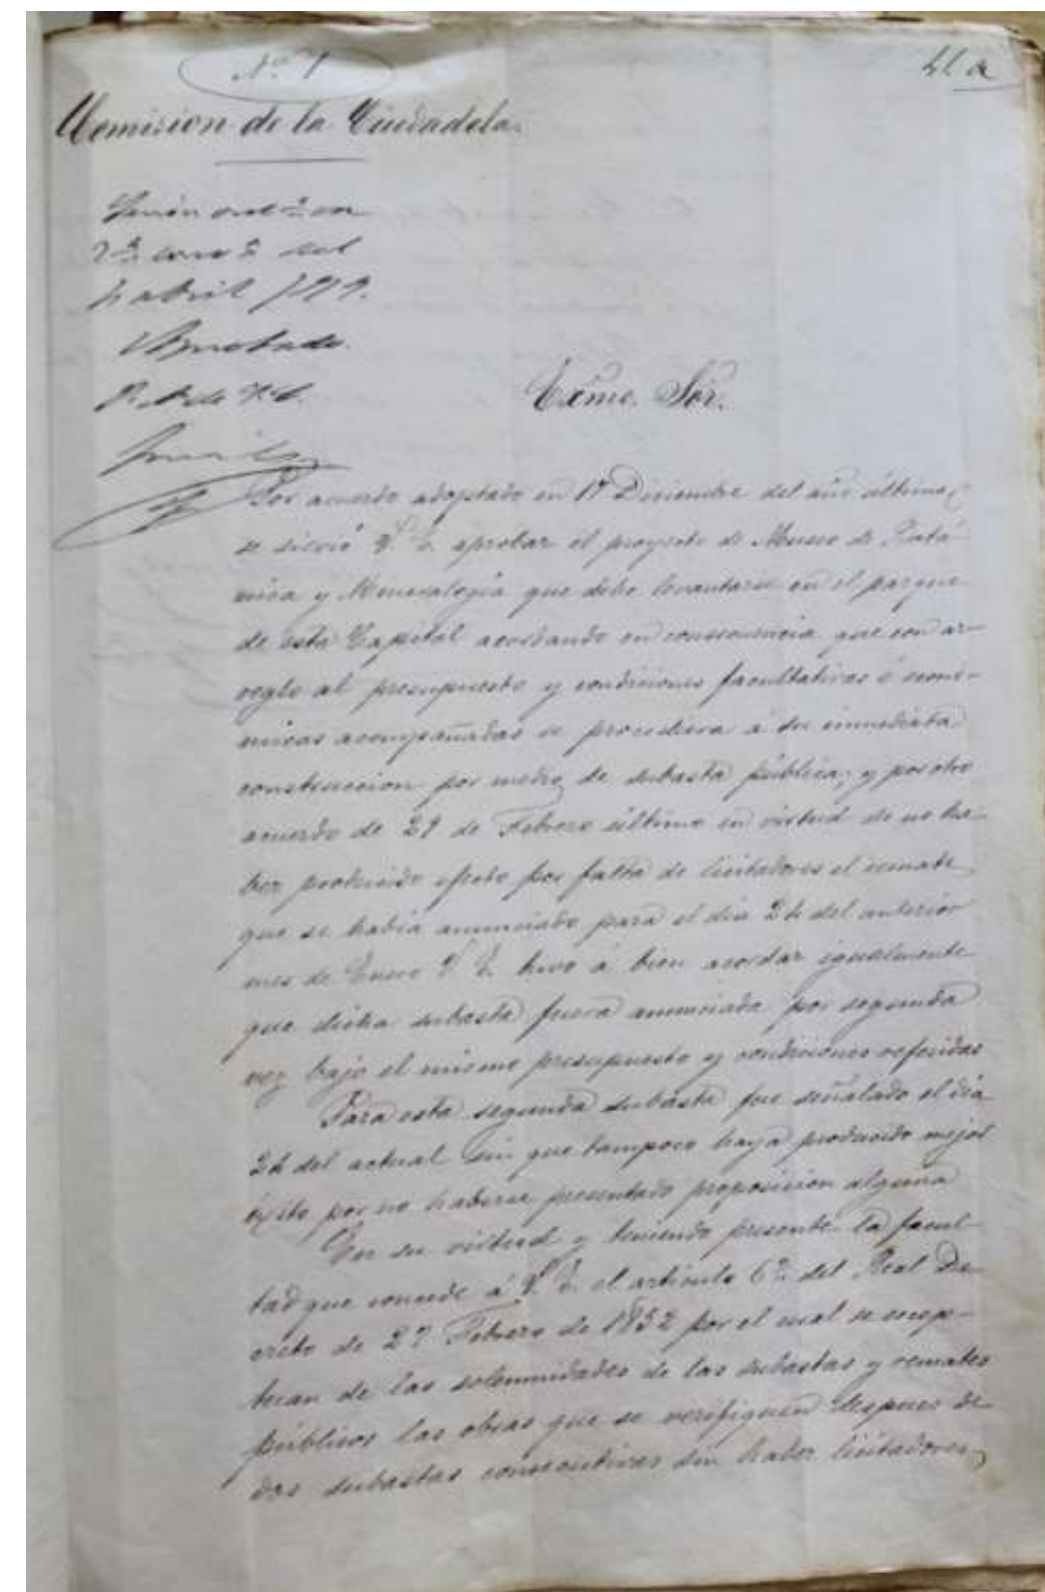 Nº 1
Comision de la Ciudadela.
Sesión ord.ª en
2.ª conv.ª del
4 abril 1879.
Aprobado.
P. A. de S. E.
Exmo. Sór.
Por acuerdo adoptado en 17 Diciembre del año último,
se sirvió V. E. aprobar el proyecto de Museo de Botá-
nica y Mineralogía que debe levantarse en el parque
de esta Capital acordando en consecuencia que con ar-
reglo al presupuesto y condiciones facultativas é econó-
micas acompañadas se procediera á su inmediata
construccion por medio de subasta pública; y por otro
acuerdo de 27 de Febrero último en virtud de no ha-
ber producido efecto por falta de licitadores el remate
que se había anunciado para el dia 24 del anterior
mes de Enero V. E. tuvo á bien acordar igualmente
que dicha subasta fuera anunciada por segunda
vez bajo el mismo presupuesto y condiciones referidas
Para esta segunda subasta fue señalado el dia
24 del actual sin que tampoco haya producido mejor
éxito por no haberse presentado proposicion alguna
En su virtud y teniendo presente la facul-
tad que concede á V. E. el artículo 6º del Real De-
creto de 27 Febrero de 1852 por el cual se excep-
tuan de las solemnidades de las subastas y remates
públicos las obras que se verifiquen despues de
dos subastas consecutivas sin haber licitadores,